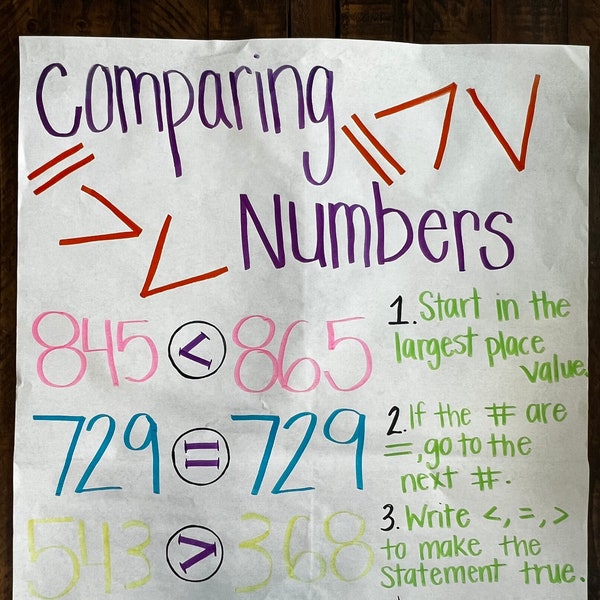 Comparing
= > V
= > <
Numbers
845 < 865
729 = 729
543 > 368
1. Start in the
largest place
value.
2. If the # are
=, go to the
next #.
3. Write <, =, >
to make the
statement true.